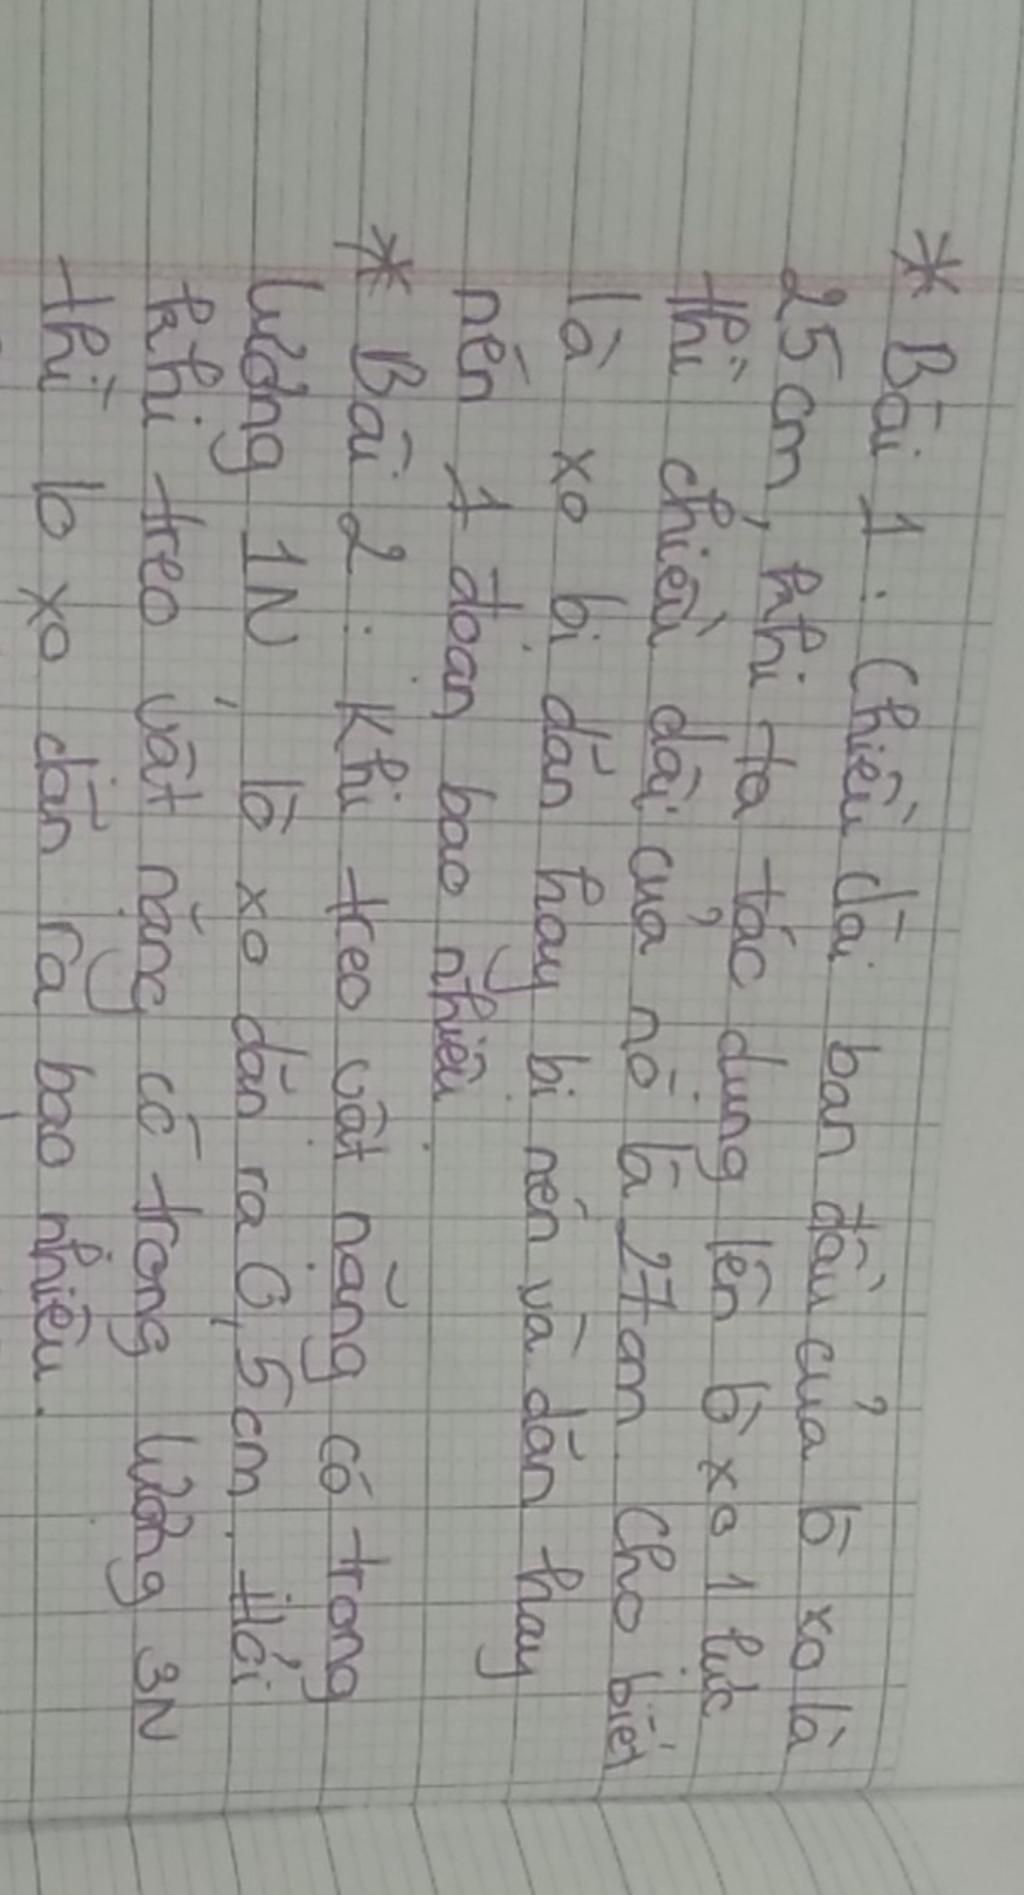 * Bài 1 : Chiều dài ban đầu của lò xo là
25 cm, khi ta tác dụng lên lò xo 1 lực
thì chiều dài của nó là 27 cm. Cho biết
lò xo bị dãn hay bị nén và dãn hay
nén 1 đoạn bao nhiêu
* Bài 2 : Khi treo vật nặng có trọng
lượng 1N, lò xo dãn ra 0,5 cm. Hỏi
khi treo vật nặng có trọng lượng 3N
thì lò xo dãn ra bao nhiêu.